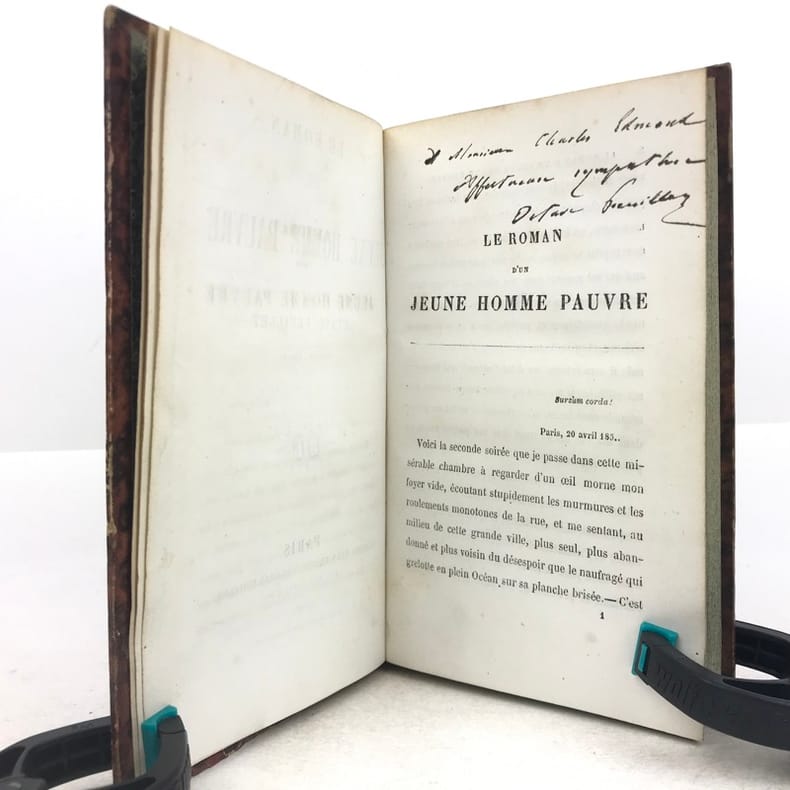 A Monsieur Charles Edmond
Affectueuse sympathie
Octave Feuillet
LE ROMAN
D'UN
JEUNE HOMME PAUVRE
Sursum corda!
Paris, 20 avril 185..
Voici la seconde soirée que je passe dans cette mi-
sérable chambre à regarder d'un œil morne mon
foyer vide, écoutant stupidement les murmures et les
roulements monotones de la rue, et me sentant, au
milieu de cette grande ville, plus seul, plus aban-
donné et plus voisin du désespoir que le naufragé qui
grelotte en plein Océan sur sa planche brisée.— C'est
1